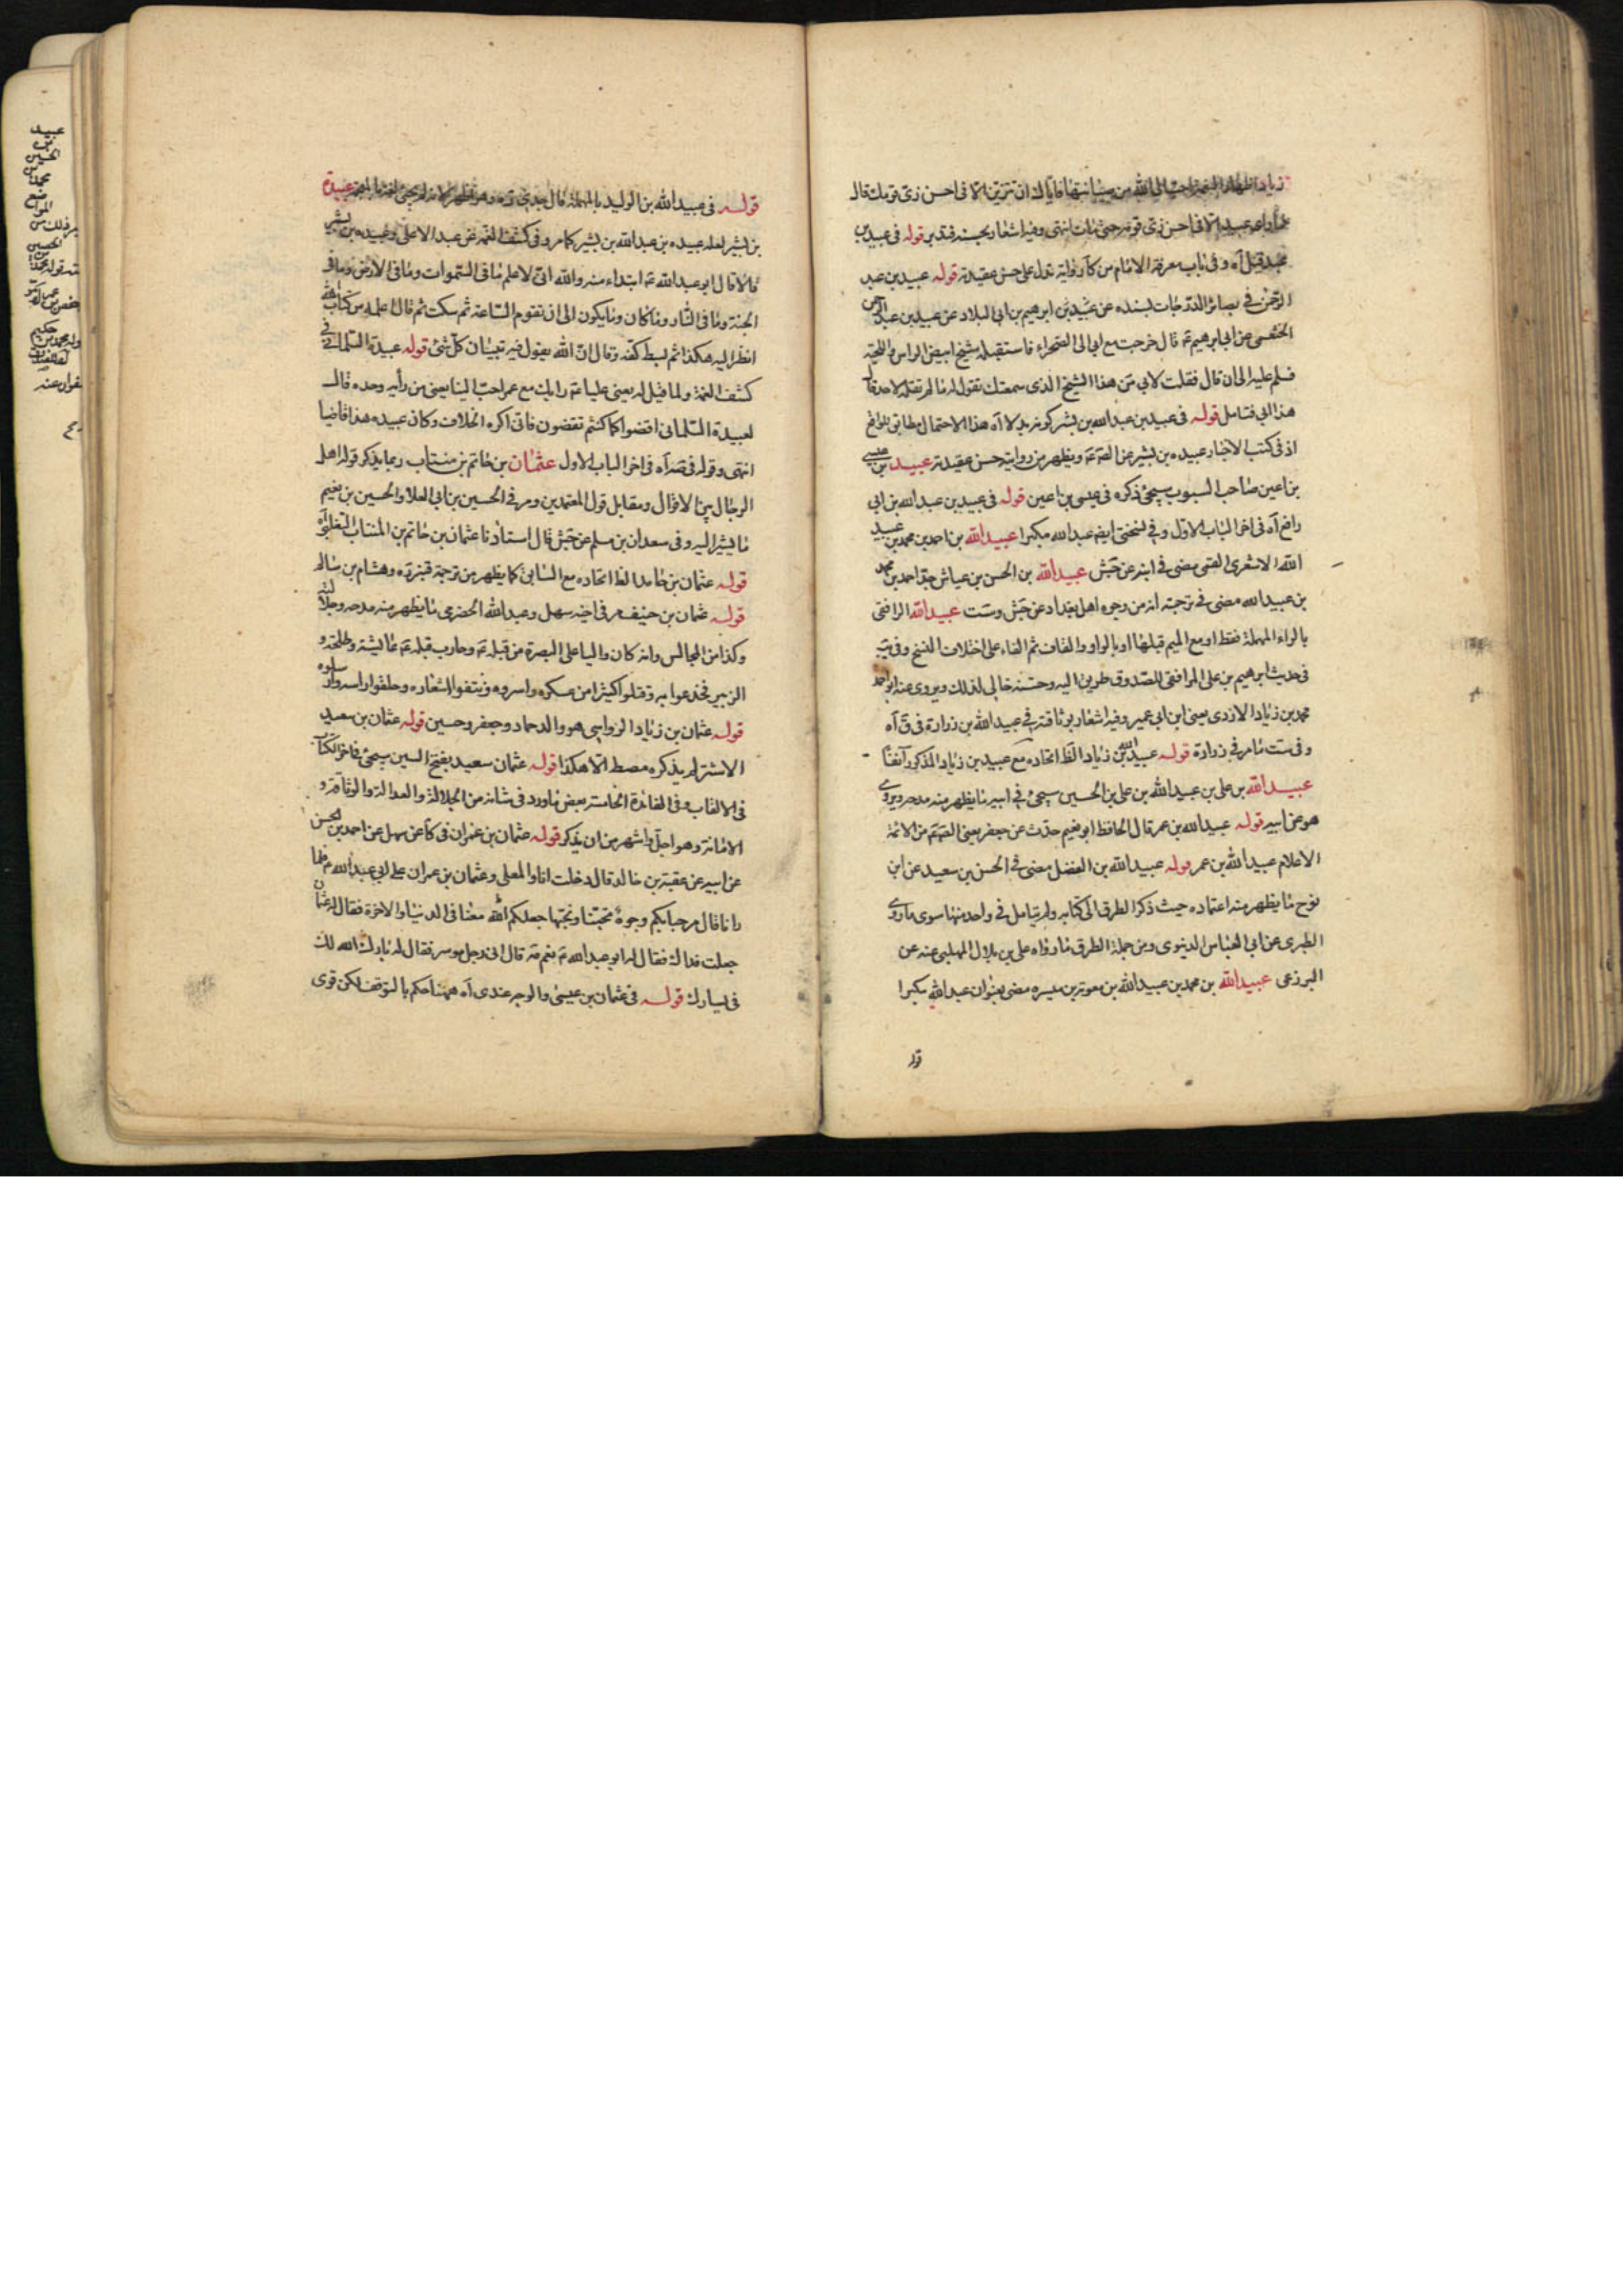 زياد اظهار النعمة احب الى الله من صيانتها فاياك ان تتزين الا فى احسن زى قومك قال
فما راى عبيد الا فى احسن زى قومه حتى مات انتهى وفيه اشعار بحسنه فتدبر قوله فى عبيد بن
محمد قيل آه وفى باب معرفة الامام من كا رواية تدل على حسن عقيدته قوله عبيد بن عبد
الرحمن فى بصائر الدرجات بسنده عن عبيد بن ابرهيم بن ابى البلاد عن عبيد بن عبد الرحمن
الخثعمى عن ابى ابرهيم عه قال خرجت مع ابى الى الصحراء فاستقبله شيخ ابيض الراس واللحية
فسلم عليه الى ان قال فقلت لابى من هذا الشيخ الذى سمعتك تقول له ما لم تقله لاحد قال
هذا ابى فتامل قوله فى عبيد بن عبد الله بن بشر كونه بدلا آه هذا الاحتمال مطابق للواقع
اذ فى كتب الاخبار عبيده بن بشير عن الصه عه ويظهر من روايته حسن عقيدته عبيد بن عيسى
بن اعين صاحب السبوب سيجئ ذكره فى عيسى بن اعين قوله فى عبيد بن عبد الله بن ابى
رافع آه فى اخر الباب الاول وفى نسختى ايضه عبد الله مكبرا عبيد الله بن احمد بن محمد بن عبيد
الله الاشعرى القمى مضى فى ابنه عن جش عبيد الله بن الحسن بن عياش جد احمد بن محمد
بن عبيد الله مضى فى ترجمته انه من وجوه اهل بغداد عن جش وست عبيد الله الرافقى
بالراء المهملة فقط او مع الميم قبلها او بالواو والقاف ثم الفاء على اختلاف النسخ وفى يب
فى حديث ابرهيم بن على المرافقى للصدوق طريق اليه وحسنه خالى لذلك ويروى عنه ابو احمد
محمد بن زياد الازدى يعنى ابن ابى عمير وفيه اشعار بوثاقته فى عبيد الله بن زرارة فى ق آه
وفى ست مامر فى زرارة قوله عبيد الله بن زياد الظ اتحاده مع عبيد بن زياد المذكور آنفًا
عبيد الله بن على بن عبيد الله بن على بن الحسين سيجئ فى ابيه ما يظهر منه مدحه ويروى
هو عن ابيه قوله عبيد الله بن عمر قال الحافظ ابو نعيم حدث عن جعفر يعنى الصه عه من الائمة
الاعلام عبيد الله بن عمر قوله عبيد الله بن الفضل مضى فى الحسن بن سعيد عن ابن
نوح ما يظهر منه اعتماده حيث ذكر الطرق الى كتابه ولم يتامل فى واحد منها سوى ما روى
الطبرى عن ابى العباس الدينورى ومن جملة الطرق ما رواه على بن بلال المهلبى عنه عن
البرزعى عبيد الله بن محمد بن عبيد الله بن معوية بن ميسره مضى بعنوان عبد الله مكبرا
قوله
قوله فى عبيد الله بن الوليد بالمهملة قال جدى عبيدة
بن بشير لعله عبيده بن عبد الله بن بشير كما مر وفى كشف الغمه عن عبد الاعلى وعبيده بن بشير
قالا قال ابو عبد الله عه ابتداء منه والله انى لاعلم ما فى السموات وما فى الارض وما فى
الجنة وما فى النار وما كان وما يكون الى ان تقوم الساعة ثم سكت ثم قال اعلمه من كتاب الله
انظر اليه هكذا ثم بسط كفه وقال ان الله يقول فيه تبيان كل شئ قوله عبيدة السلمانى فى
كشف الغمة ولما قيل له يعنى عليا عه رايك مع عمر احب الينا يعنى من رأيه وحده قال
لعبيدة السلمانى اقضوا كما كنتم تقضون فانى اكره الخلاف وكان عبيده هذا قاضيا
انتهى وقوله فى صه آه فى اخر الباب الاول عثمان بن حاتم بن منتاب ربما يذكر قوله اهل
الرجال بين الاقوال ومقابل قول المعتمدين ومر فى الحسين بن ابى العلا والحسين بن نعيم
ما يشير اليه وفى سعدان بن مسلم عن جش قال استاذنا عثمان بن حاتم بن المنتاب التغلبى آه
قوله عثمان بن حامد الظ اتحاده مع السابق كما يظهر من ترجمة قنبره وهشام بن سالم
قوله عثمان بن حنيف مر فى اخيه سهل وعبد الله الحضرمى ما يظهر منه مدحه وجلالته
وكذا من المجالس وانه كان واليا على البصرة من قبله عه وحارب قبله عه عائيشة وطلحة و
الزبير فخدعوا به وقتلوا كثيرا من عسكره واسروه ونتفوا اشعاره وحلقوا راسه
قوله عثمان بن زياد الرواسى هو والد حماد وجعفر وحسين قوله عثمان بن سعيد
الاشتر لم يذكره مصط الا هكذا قوله عثمان سعيد بفتح السين سيجئ فى اخر الكتاب
فى الالقاب وفى الفائدة الخامسة بعض ما ورد فى شانه من الجلالة والعدالة والوثاقة و
الامانة وهو اجل واشهر من ان يذكر قوله عثمان بن عمران فى كا عن سهل عن احمد بن الحسن
عن ابيه عن عقبة بن خالد قال دخلت انا والمعلى وعثمان بن عمران على ابى عبد الله عه فلما
رانا قال مرحبا بكم وجوه تحبنا ونحبها جعلكم الله معنا فى الدنيا والاخرة فقال له عثمان
جعلت فداك فقال له ابو عبد الله عه نعم مه قال انى رجل موسر فقال له بارك الله لك
فى يسارك قوله فى عثمان بن عيسى والوجه عندى آه ههنا حكم بالتوقف لكن قوى
عبيد
بن
الحسين
محمد